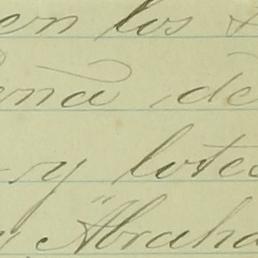 en los
eña de
y lotes
y "Abraha